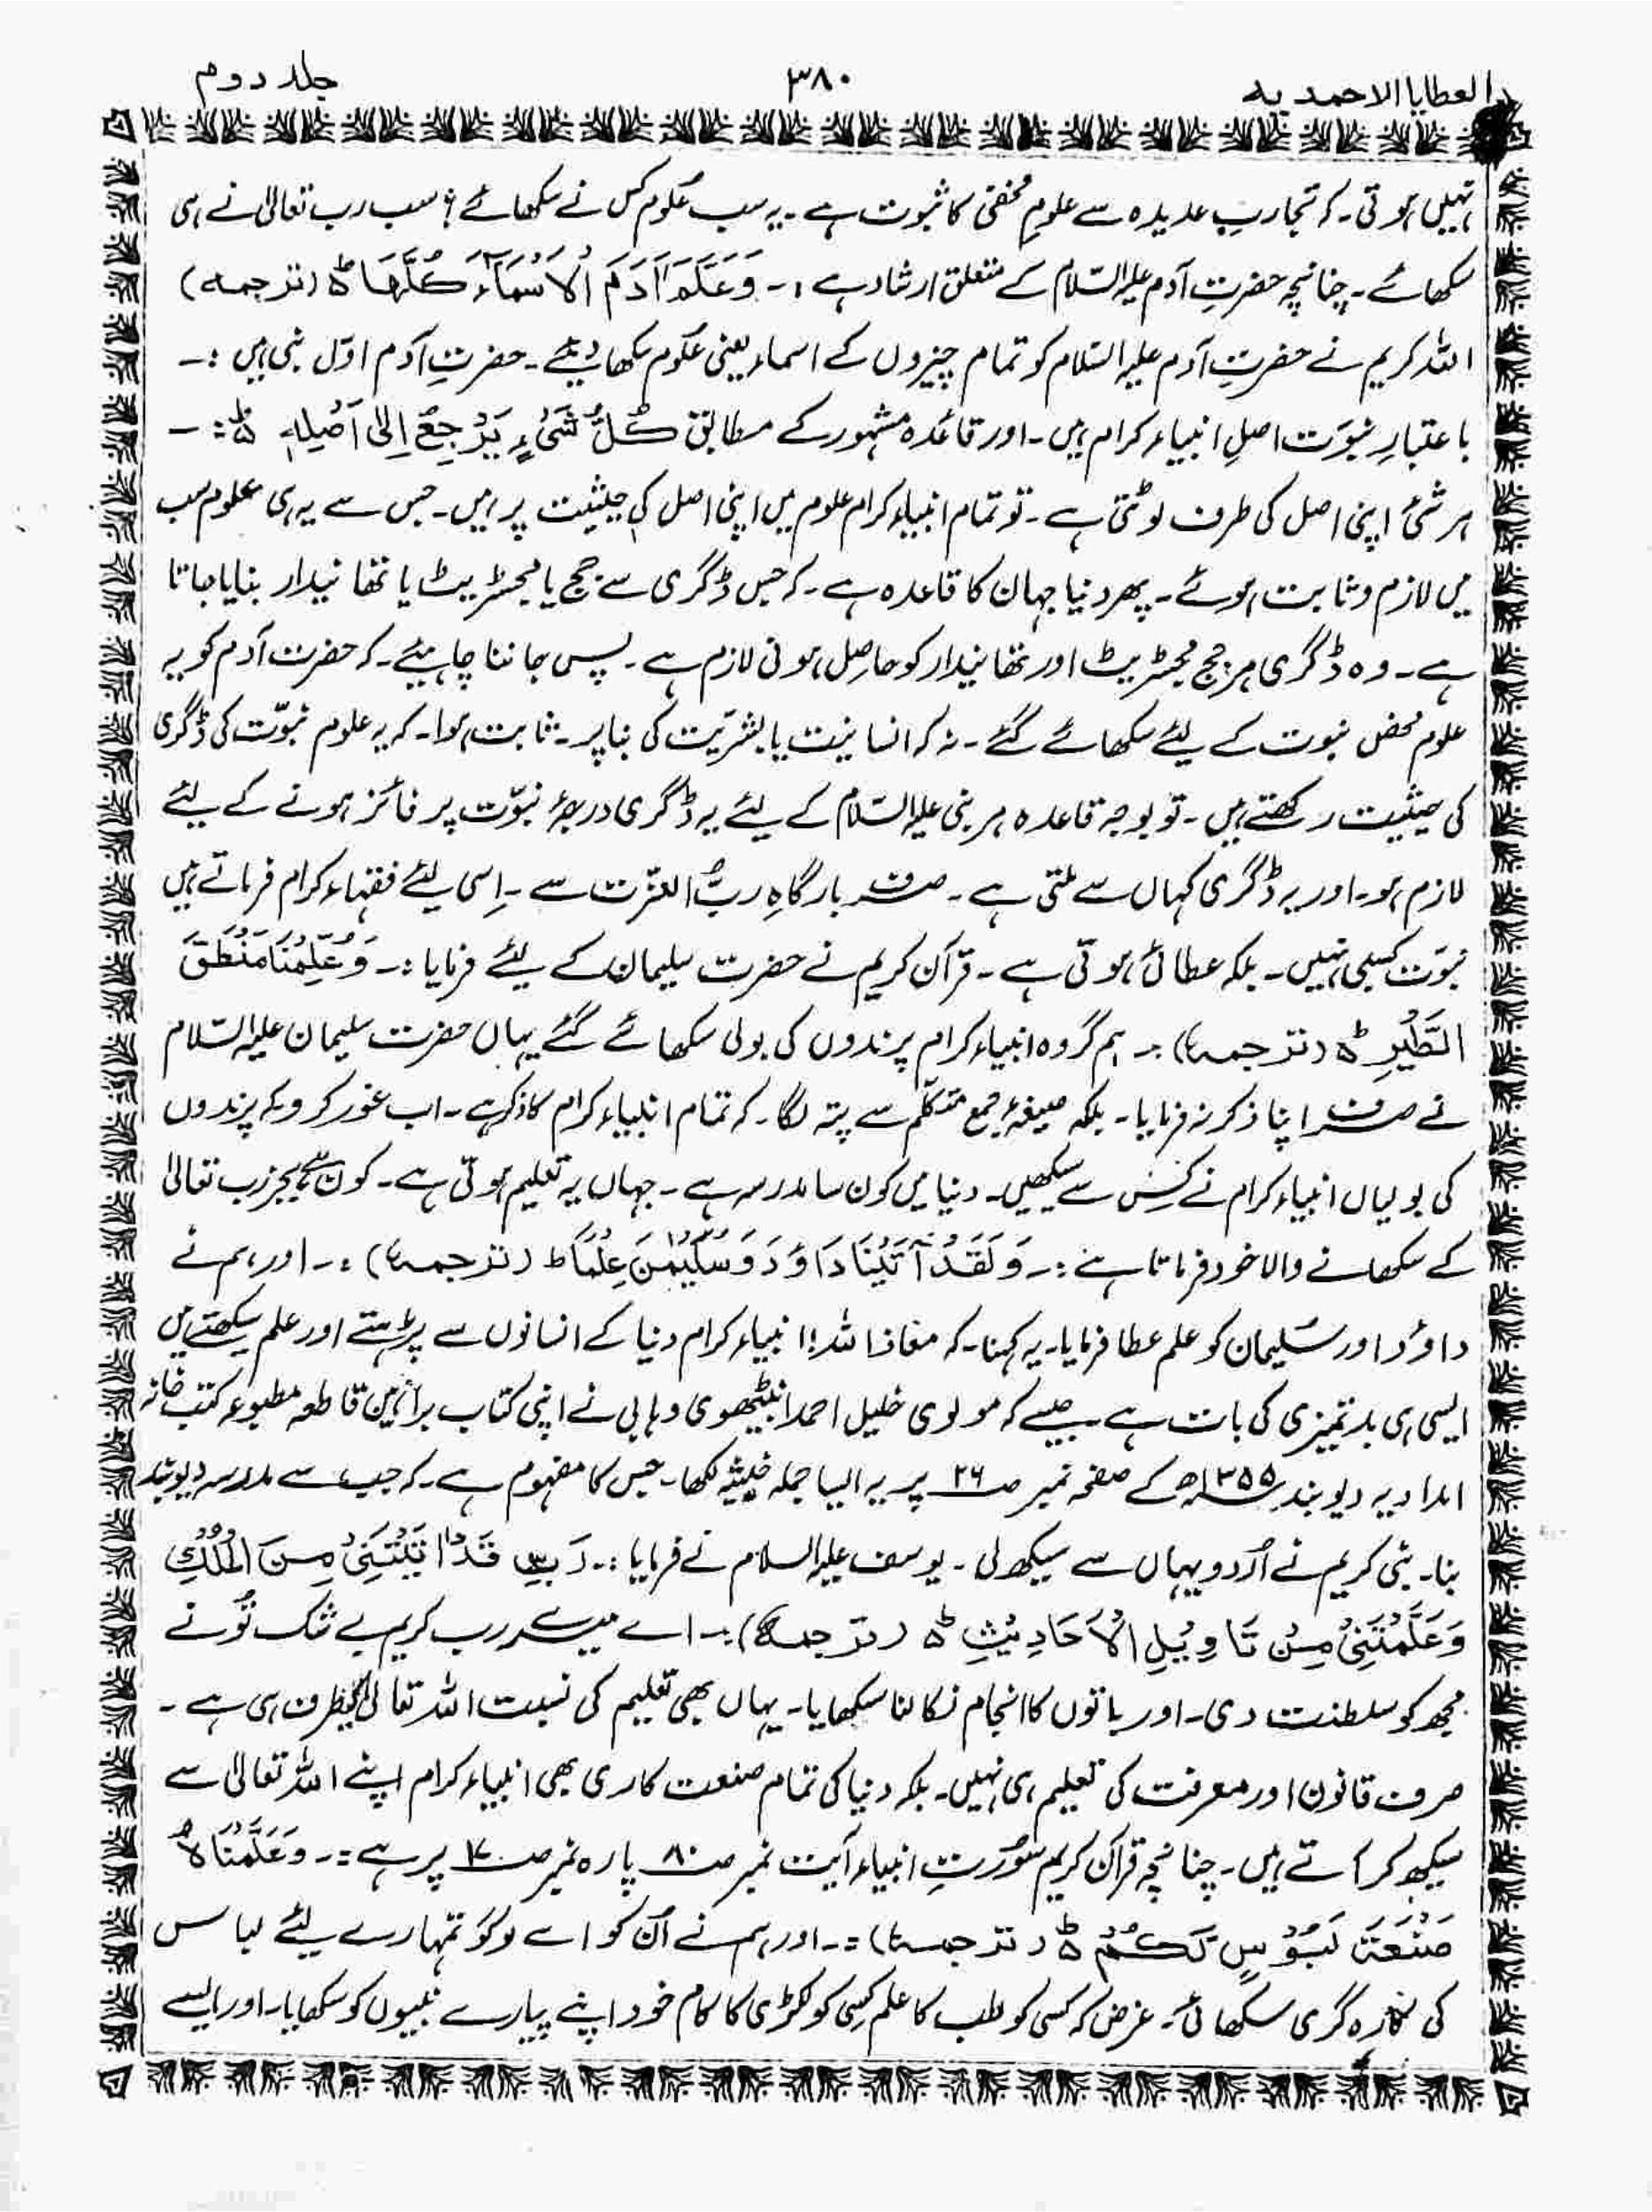 العطایا الاحمدیہ ۳۸۰ جلد دوم
نہیں ہوتی۔ کہ تجاربِ عدیدہ سے علومِ مخفی کا ثبوت ہے۔ یہ سب عُلوم کس نے سکھائے؟ سب رب تعالیٰ نے ہی
سکھائے۔ چنانچہ حضرتِ آدم علیہ السّلام کے متعلق ارشاد ہے :۔ وَعَلَّمَ آدَمَ الْاَسْمَآءَ كُلَّهَا ط (ترجمہ)
اللہ کریم نے حضرتِ آدم علیہ السّلام کو تمام چیزوں کے اسماء یعنی عُلوم سکھا دیئے۔ حضرتِ آدم اوّل نبی ہیں :۔
باعتبارِ نبوّت اصلِ انبیاء کرام ہیں۔ اور قاعدہ مشہور کے مطابق كُلُّ شَیْءٍ یَرْجِعُ اِلیٰ اَصْلِهٖ ط :۔
ہر شئ اپنی اصل کی طرف لوٹتی ہے۔ تو تمام انبیاء کرام علوم میں اپنی اصل کی حیثیت پر ہیں۔ جس سے یہ ہی علوم سب
میں لازم و ثابت ہوئے۔ پھر دنیا جہان کا قاعدہ ہے۔ کہ جس ڈگری سے جج یا مجسٹریٹ یا تھانیدار بنایا جاتا
ہے۔ وہ ڈگری ہر جج مجسٹریٹ اور تھانیدار کو حاصل ہونی لازم ہے۔ پس جاننا چاہیئے۔ کہ حضرت آدم کو یہ
علوم محض نبوت کے لیئے سکھائے گئے۔ نہ کہ انسانیت یا بشریّت کی بنا پر۔ ثابت ہوا۔ کہ یہ علوم نبوّت کی ڈگری
کی حیثیت رکھتے ہیں۔ تو بوجہ قاعدہ ہر نبی علیہ السّلام کے لیئے یہ ڈگری درجۂ نبوّت پر فائز ہونے کے لیئے
لازم ہو۔ اور یہ ڈگری کہاں سے ملتی ہے۔ صرف بارگاہِ ربُّ العزّت سے۔ اِسی لیئے فقہاء کرام فرماتے ہیں
نبوّت کسبی نہیں۔ بلکہ عطائی ہوتی ہے۔ قرآن کریم نے حضرت سلیمان کے لیئے فرمایا :۔ وَعُلِّمْنَا مَنْطِقَ
الطَّیْرِ ط (ترجمہ) :۔ ہم گروہ انبیاء کرام پرندوں کی بولی سکھائے گئے یہاں حضرت سلیمان علیہ السّلام
نے صرف اپنا ذکر نہ فرمایا۔ بلکہ صیغۂ جمع متکلّم سے پتہ لگا۔ کہ تمام انبیاء کرام کا ذکر ہے۔ اب غور کرو کہ پرندوں
کی بولیاں انبیاء کرام نے کِس سے سیکھیں۔ دنیا میں کون سا مدرسہ ہے۔ جہاں یہ تعلیم ہوتی ہے۔ کون ہے بجز رب تعالیٰ
کے سکھانے والا خود فرماتا ہے :۔ وَلَقَدْ آتَیْنَا دَاوٗدَ وَسُلَیْمٰنَ عِلْمًا ط (ترجمہ) :۔ اور ہم نے
داؤد اور سُلیمان کو علم عطا فرمایا۔ یہ کہنا۔ کہ معاذ اللہ! انبیاء کرام دنیا کے انسانوں سے پڑھتے اور علم سیکھتے ہیں
ایسی ہی بدتمیزی کی بات ہے جیسے کہ مولوی خلیل احمد انبیٹھوی وہابی نے اپنی کتاب براہین قاطعہ مطبوعہ کتب خانہ
امدادیہ دیوبند ۱۳۵۵ھ کے صفحہ نمبر صـ۲۶ پر یہ ایسا جملہ خبیثہ لکھا۔ جس کا مفہوم ہے۔ کہ جب سے مدرسہ دیوبند
بنا۔ نبی کریم نے اُردو یہاں سے سیکھ لی۔ یوسف علیہ السلام نے فرمایا :۔ رَبِّ قَدْ اٰتَیْتَنِیْ مِنَ الْمُلْكِ
وَعَلَّمْتَنِیْ مِنْ تَاوِیْلِ الْاَحَادِیْثِ ط (ترجمہ) :۔ اے میرے رب کریم بے شک تُو نے
مجھ کو سلطنت دی۔ اور باتوں کا انجام نکالنا سکھایا۔ یہاں بھی تعلیم کی نسبت اللہ تعالیٰ کیطرف ہی ہے۔
صرف قانون اور معرفت کی تعلیم ہی نہیں۔ بلکہ دنیا کی تمام صنعت کاری بھی انبیاء کرام اپنے اللہ تعالیٰ سے
سیکھ کر آتے ہیں۔ چنانچہ قرآن کریم سُورتِ انبیاء آیت نمبر صـ۸۰ پارہ نمبر صـ۱۷ پر ہے :۔ وَعَلَّمْنَاهُ
صَنْعَةَ لَبُوْسٍ لَّكُمْ ط (ترجمہ) :۔ اور ہم نے اُن کو اے لوگو تمہارے لیئے لباس
کی کارہ گری سکھائی۔ غرض کہ کسی کو طب کا علم کسی کو لکڑی کا کام خود اپنے پیارے نبیوں کو سکھایا۔ اور ایسے